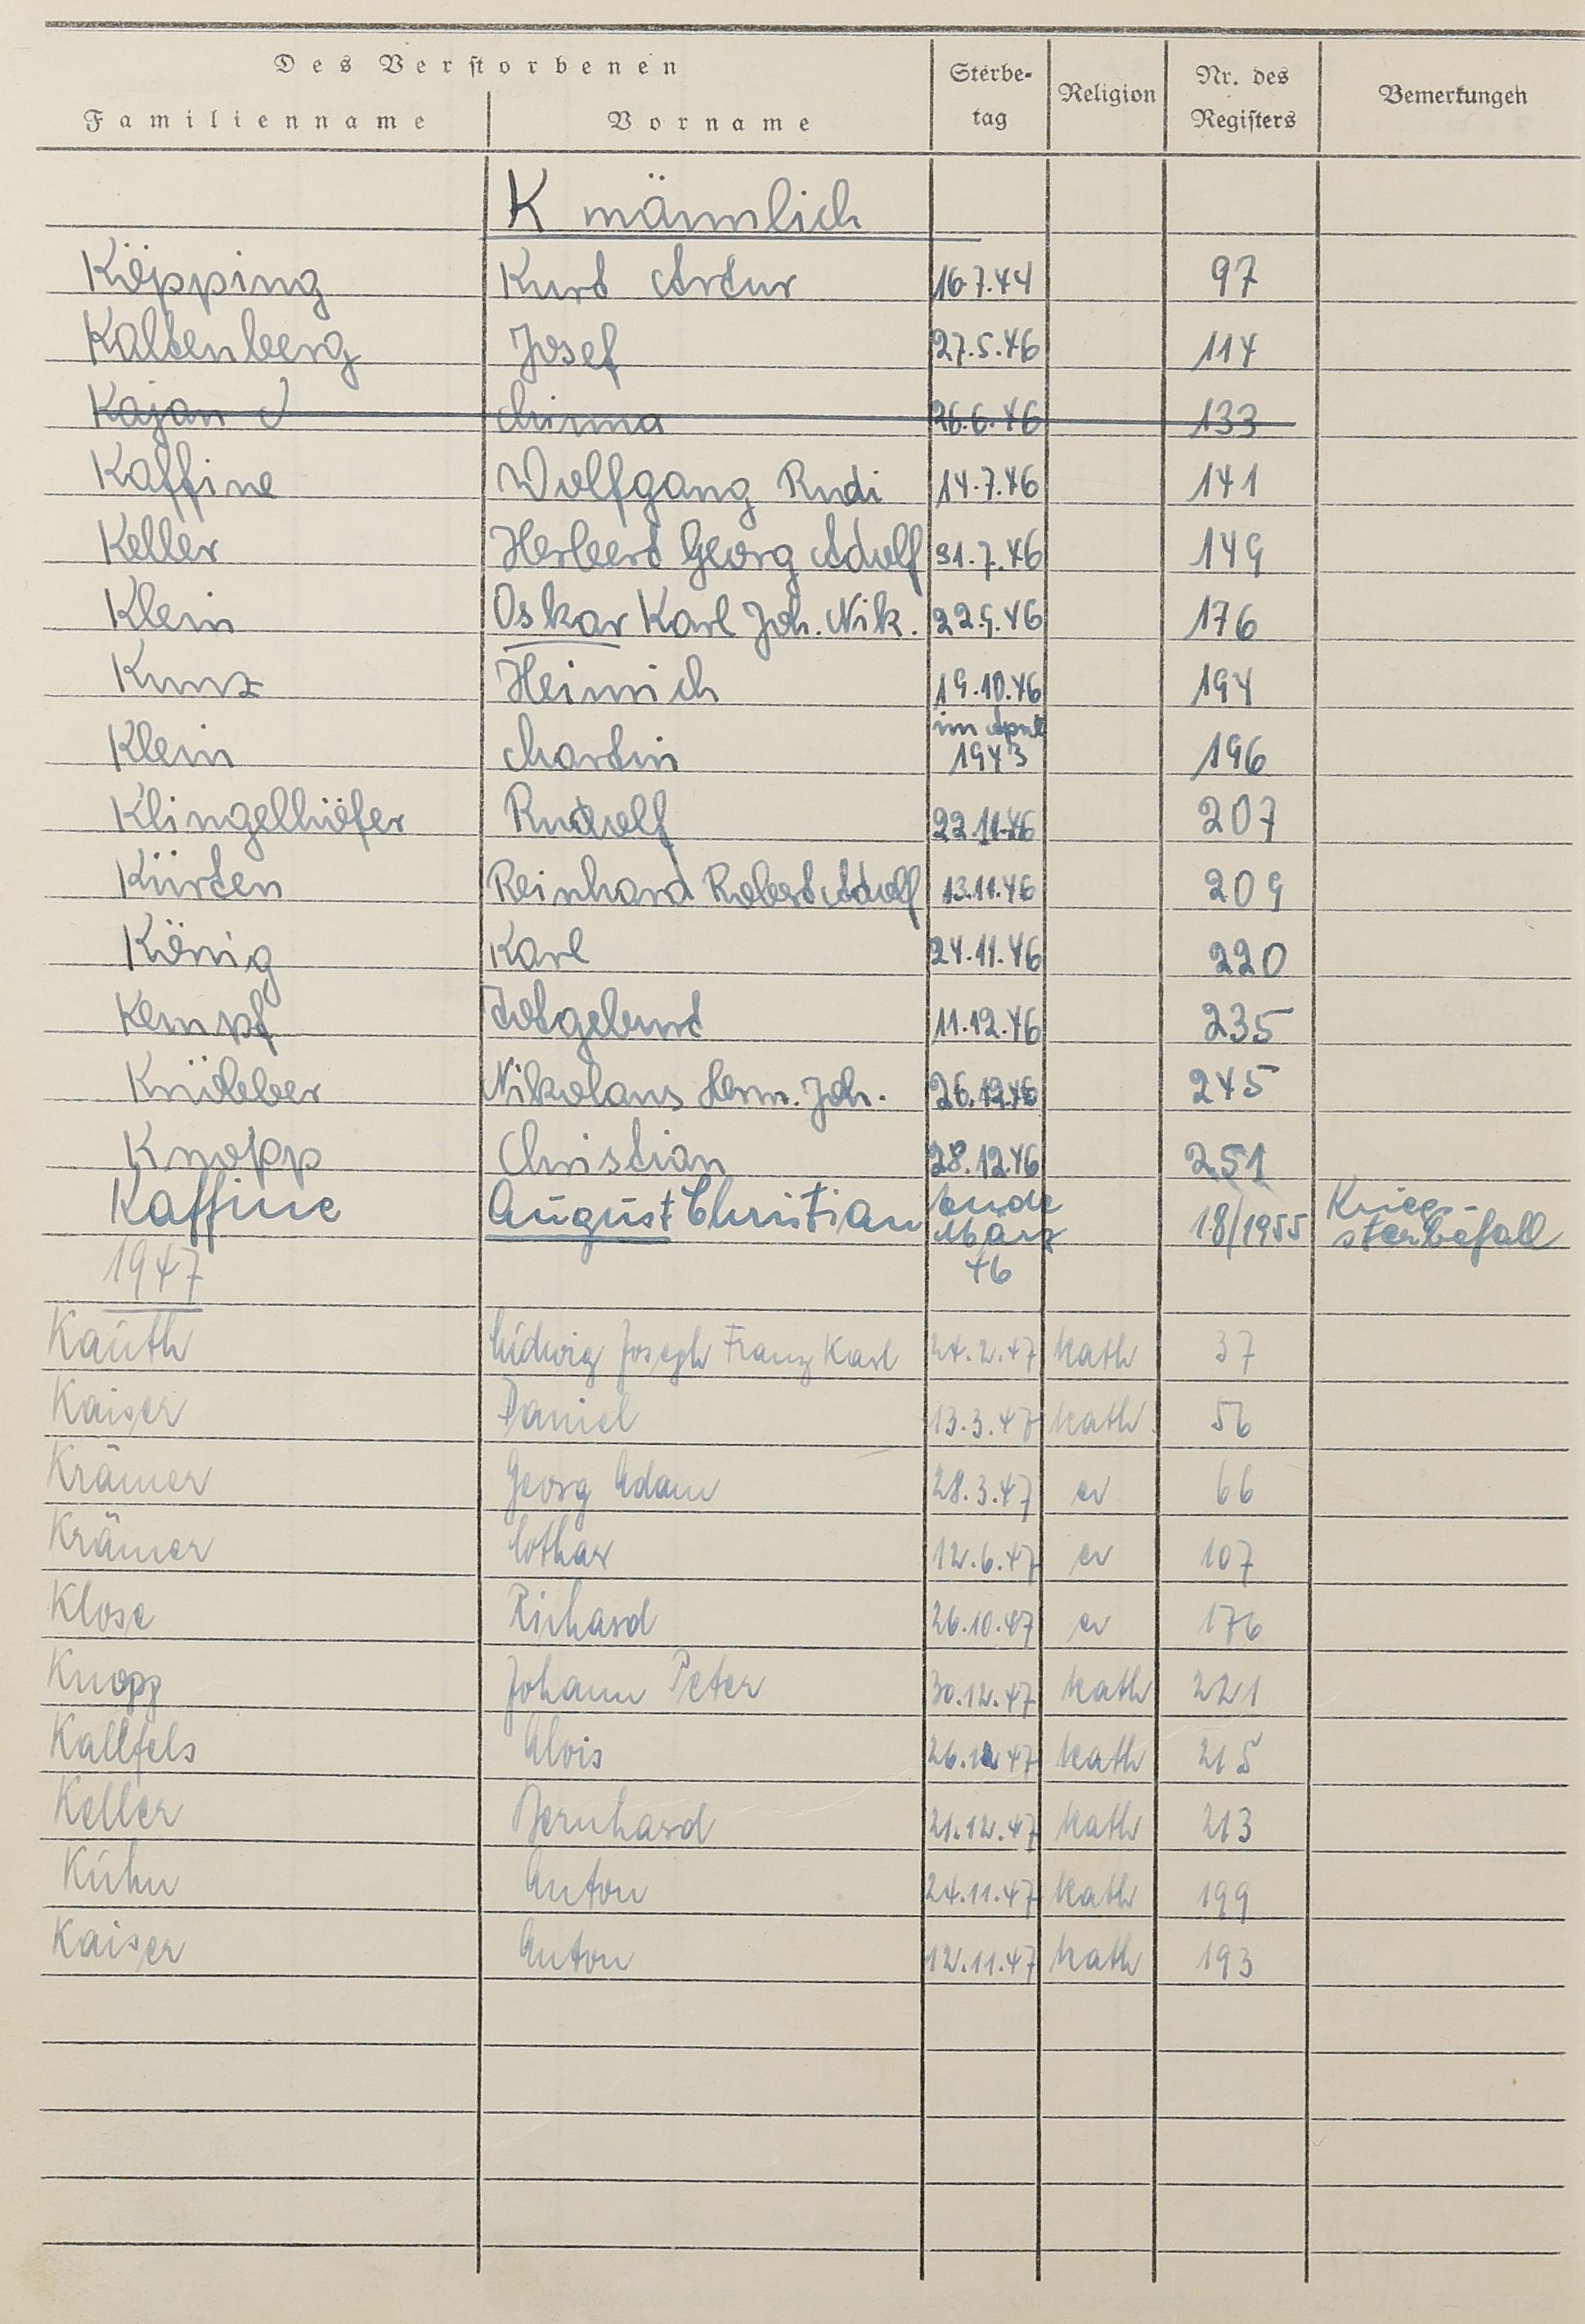 Des Verstorbenen
Sterbe-
tag
Religion
Nr. des
Registers
Bemerkungen
Familienname Vorname
K männlich
Köpping Kurt Artur 16.7.44 97
Kaltenberg Josef 27.5.46 114
Kajan Minna 26.6.46 133
Kaffine Wolfgang Rudi 14.7.46 141
Keller Herbert Georg Adolf 31.7.46 149
Klein Oskar Karl Joh. Nik. 22.9.46 176
Kunz Heinrich 19.10.46 194
Klein Martin im April 1943 196
Klingelhöfer Rudolf 22.11.46 207
Kürten Reinhard Robert Adolf 13.11.46 209
König Karl 24.11.46 220
Kempf Totgeburt 11.12.46 235
Nikolaus Herm. Joh. 26.12.46 245
Knopp Christian 28.12.46 251
Kaffine August Christian Ende März 46 18/1955 Kriegssterbefall
1947
Kauth Ludwig Joseph Franz Karl 24.2.47 kath 37
Kaiser Daniel 13.3.47 kath. 56
Krämer Georg Adam 28.3.47 ev 66
Krämer Lothar 12.6.47 ev 107
Klose Richard 26.10.47 ev 176
Knopp Johann Peter 30.12.47 kath 221
Kallfels Alois 26.12.47 kath 215
Keller Bernhard 21.12.47 kath 213
Kühn Anton 24.11.47 kath 199
Kaiser Anton 12.11.47 kath 193